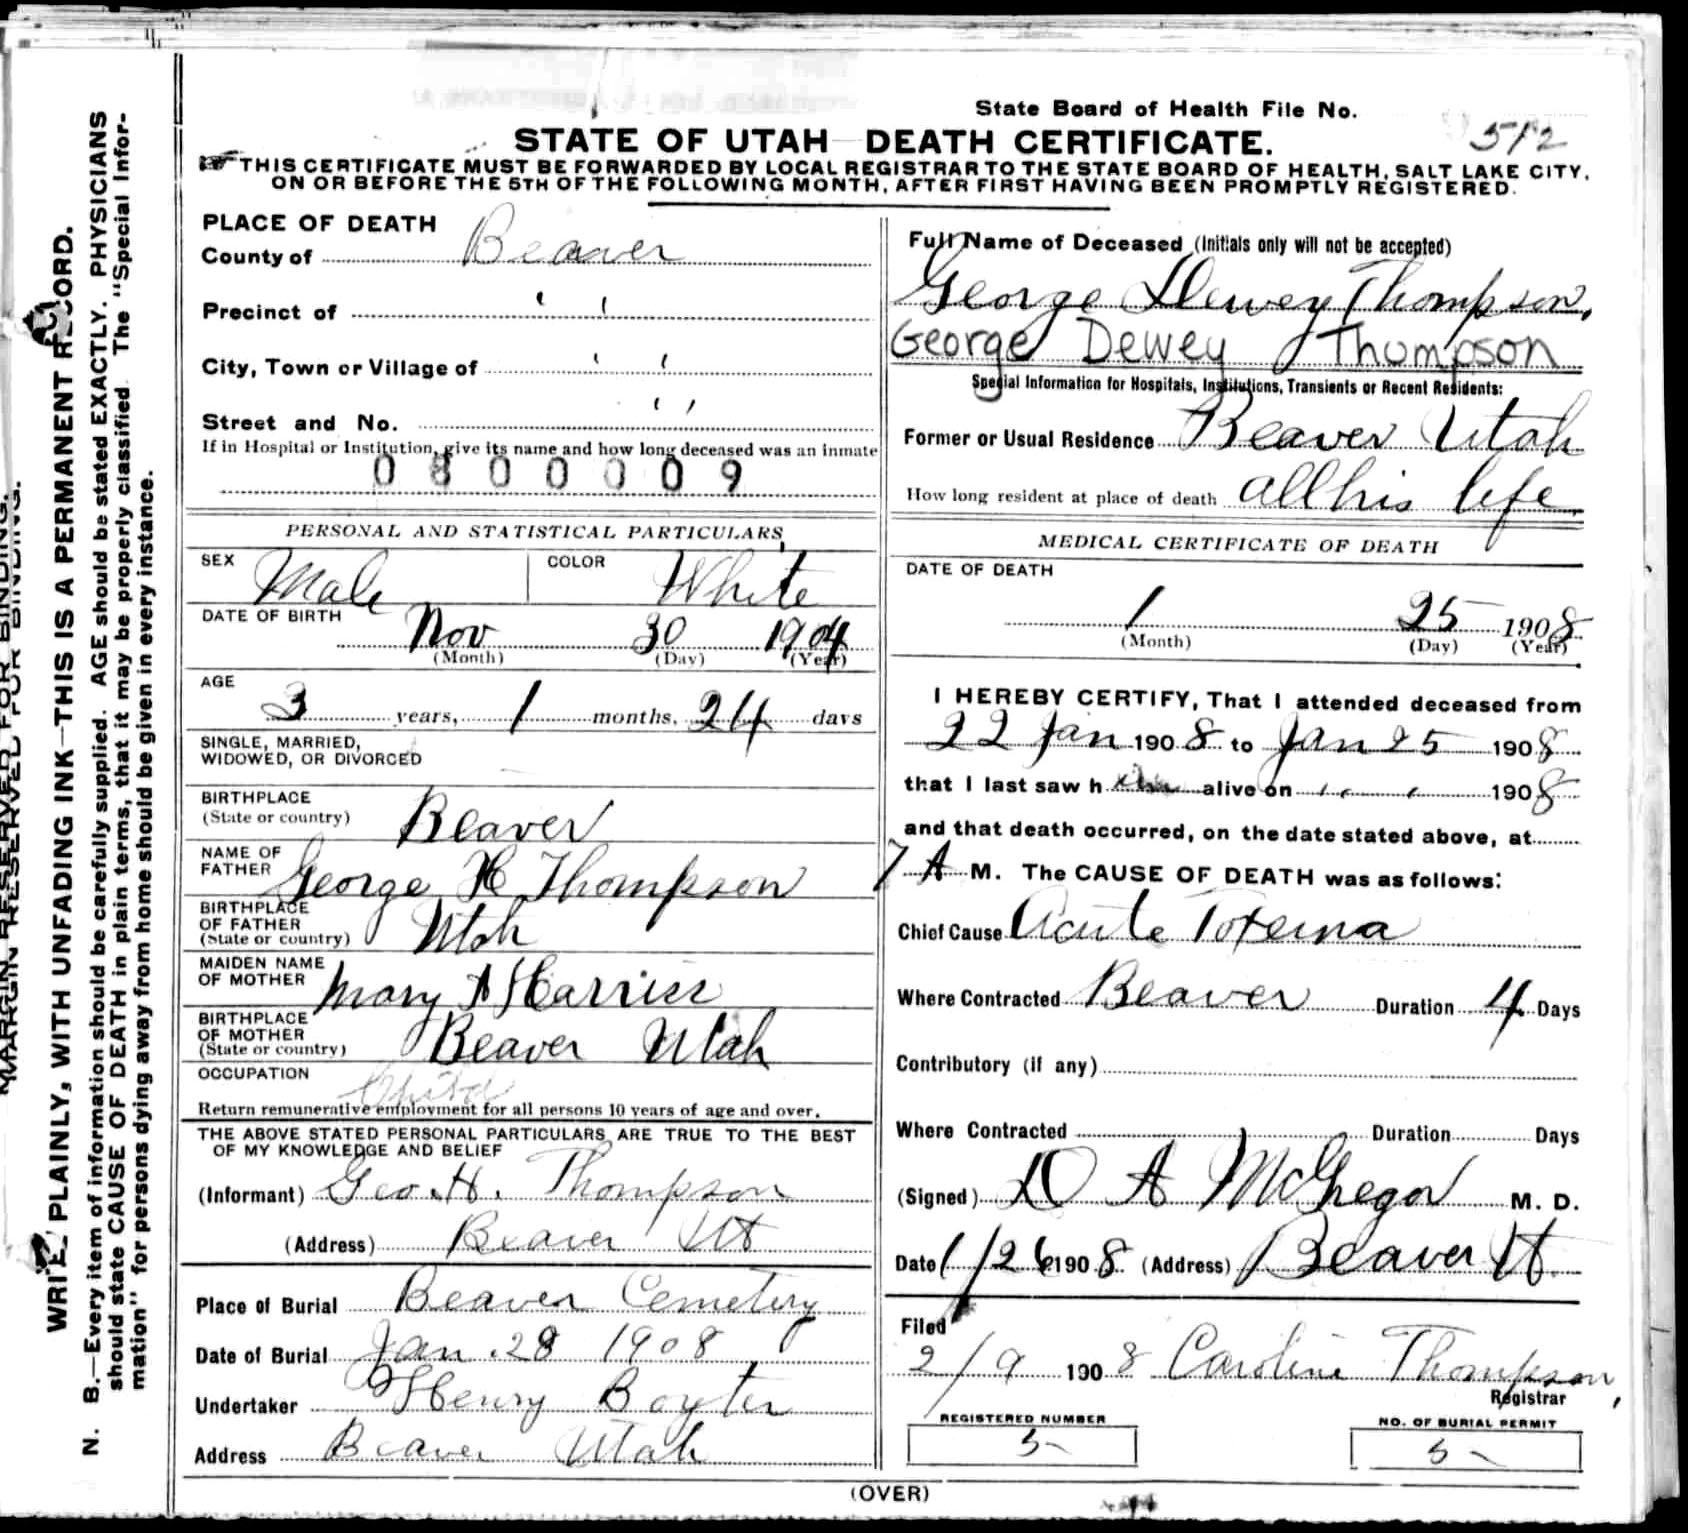 State Board of Health File No.
512
STATE OF UTAH DEATH CERTIFICATE.
THIS CERTIFICATE MUST BE FORWARDED BY LOCAL REGISTRAR TO THE STATE BOARD OF HEALTH, SALT LAKE CITY,
ON OR BEFORE THE 5TH OF THE FOLLOWING MONTH, AFTER FIRST HAVING BEEN PROMPTLY REGISTERED.
PLACE OF DEATH
County of Beaver
Precinct of " "
City, Town or Village of " "
Street and No. " "
If in Hospital or Institution, give its name and how long deceased was an inmate
0 8 0 0 0 0 9
PERSONAL AND STATISTICAL PARTICULARS
SEX Male COLOR White
DATE OF BIRTH Nov 30 1904
(Month) (Day) (Year)
AGE
3 years, 1 months, 24 days
SINGLE, MARRIED,
WIDOWED, OR DIVORCED
BIRTHPLACE
(State or country) Beaver
NAME OF
FATHER George H Thompson
BIRTHPLACE
OF FATHER
(State or country) Utah
MAIDEN NAME
OF MOTHER Mary A Harriss
BIRTHPLACE
OF MOTHER
(State or country) Beaver Utah
OCCUPATION Child
Return remunerative employment for all persons 10 years of age and over.
THE ABOVE STATED PERSONAL PARTICULARS ARE TRUE TO THE BEST
OF MY KNOWLEDGE AND BELIEF
(Informant) Geo. H. Thompson
(Address) Beaver Ut
Place of Burial Beaver Cemetery
Date of Burial Jan. 28 1908
Undertaker Henry Boyter
Address Beaver Utah
Full Name of Deceased (Initials only will not be accepted)
George Dewey Thompson,
George Dewey Thompson
Special Information for Hospitals, Institutions, Transients or Recent Residents:
Former or Usual Residence Beaver Utah
How long resident at place of death all his life
MEDICAL CERTIFICATE OF DEATH
DATE OF DEATH
1 25 1908
(Month) (Day) (Year)
I HEREBY CERTIFY, That I attended deceased from
22 Jan 1908 to Jan 25 1908
that I last saw h im alive on " " 1908
and that death occurred, on the date stated above, at
7 A M. The CAUSE OF DEATH was as follows:
Chief Cause Acute Toxemia
Where Contracted Beaver Duration 4 Days
Contributory (if any)
Where Contracted Duration Days
(Signed) D A McGregor M. D.
Date 1/26 1908 (Address) Beaver Ut.
Filed
2/9 1908 Caroline Thompson,
Registrar
REGISTERED NUMBER
5
NO. OF BURIAL PERMIT
5
(OVER)
MARGIN RESERVED FOR BINDING.
WRITE PLAINLY, WITH UNFADING INK—THIS IS A PERMANENT RECORD.
N. B.—Every item of information should be carefully supplied. AGE should be stated EXACTLY. PHYSICIANS
should state CAUSE OF DEATH in plain terms, that it may be properly classified. The "Special Infor-
mation" for persons dying away from home should be given in every instance.